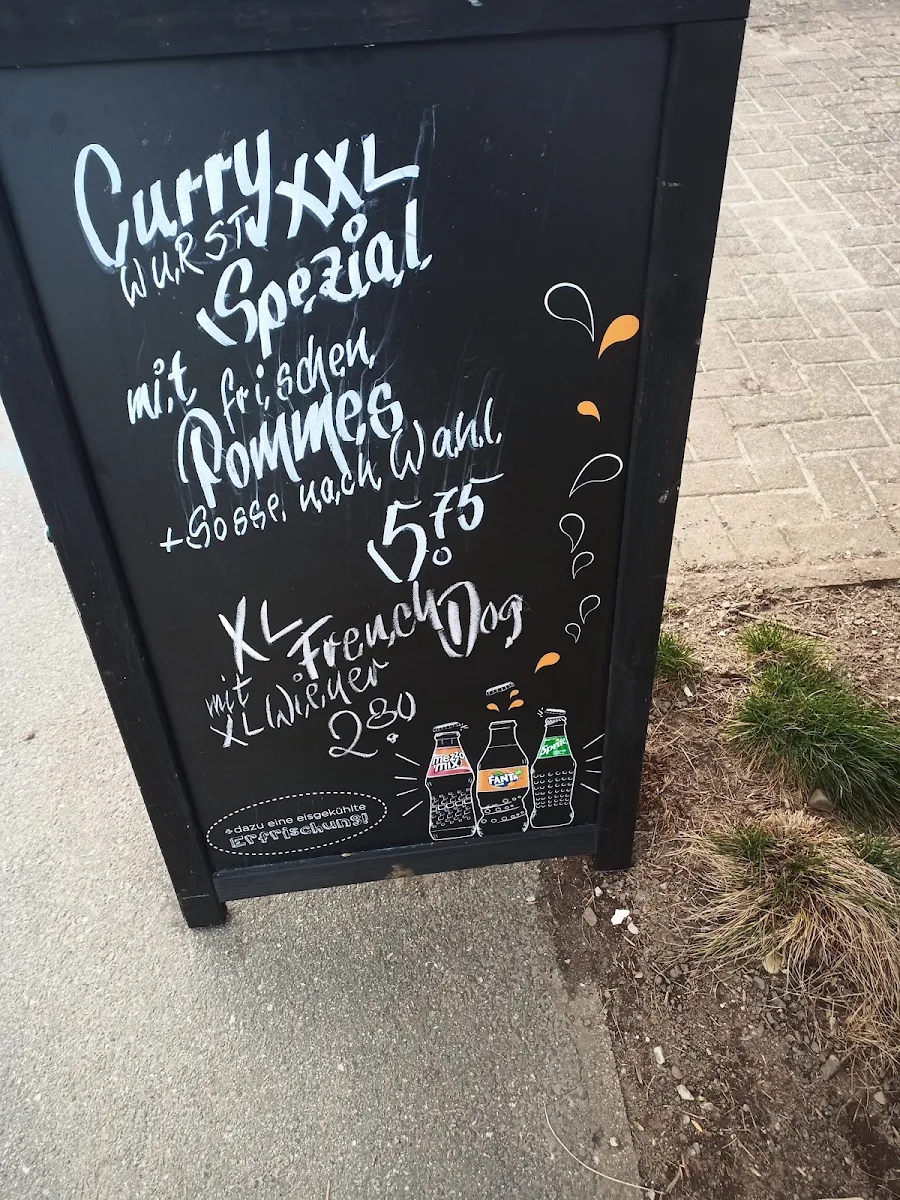 Curry XXL
WURST
Spezial
mit frischen
Pommes
+Sosse nach Wahl
5,75
XL French Dog
mit
XL Wiener
2,80
mezzo
mix
FANTA
Sprite
*dazu eine eisgekühlte
Erfrischung!